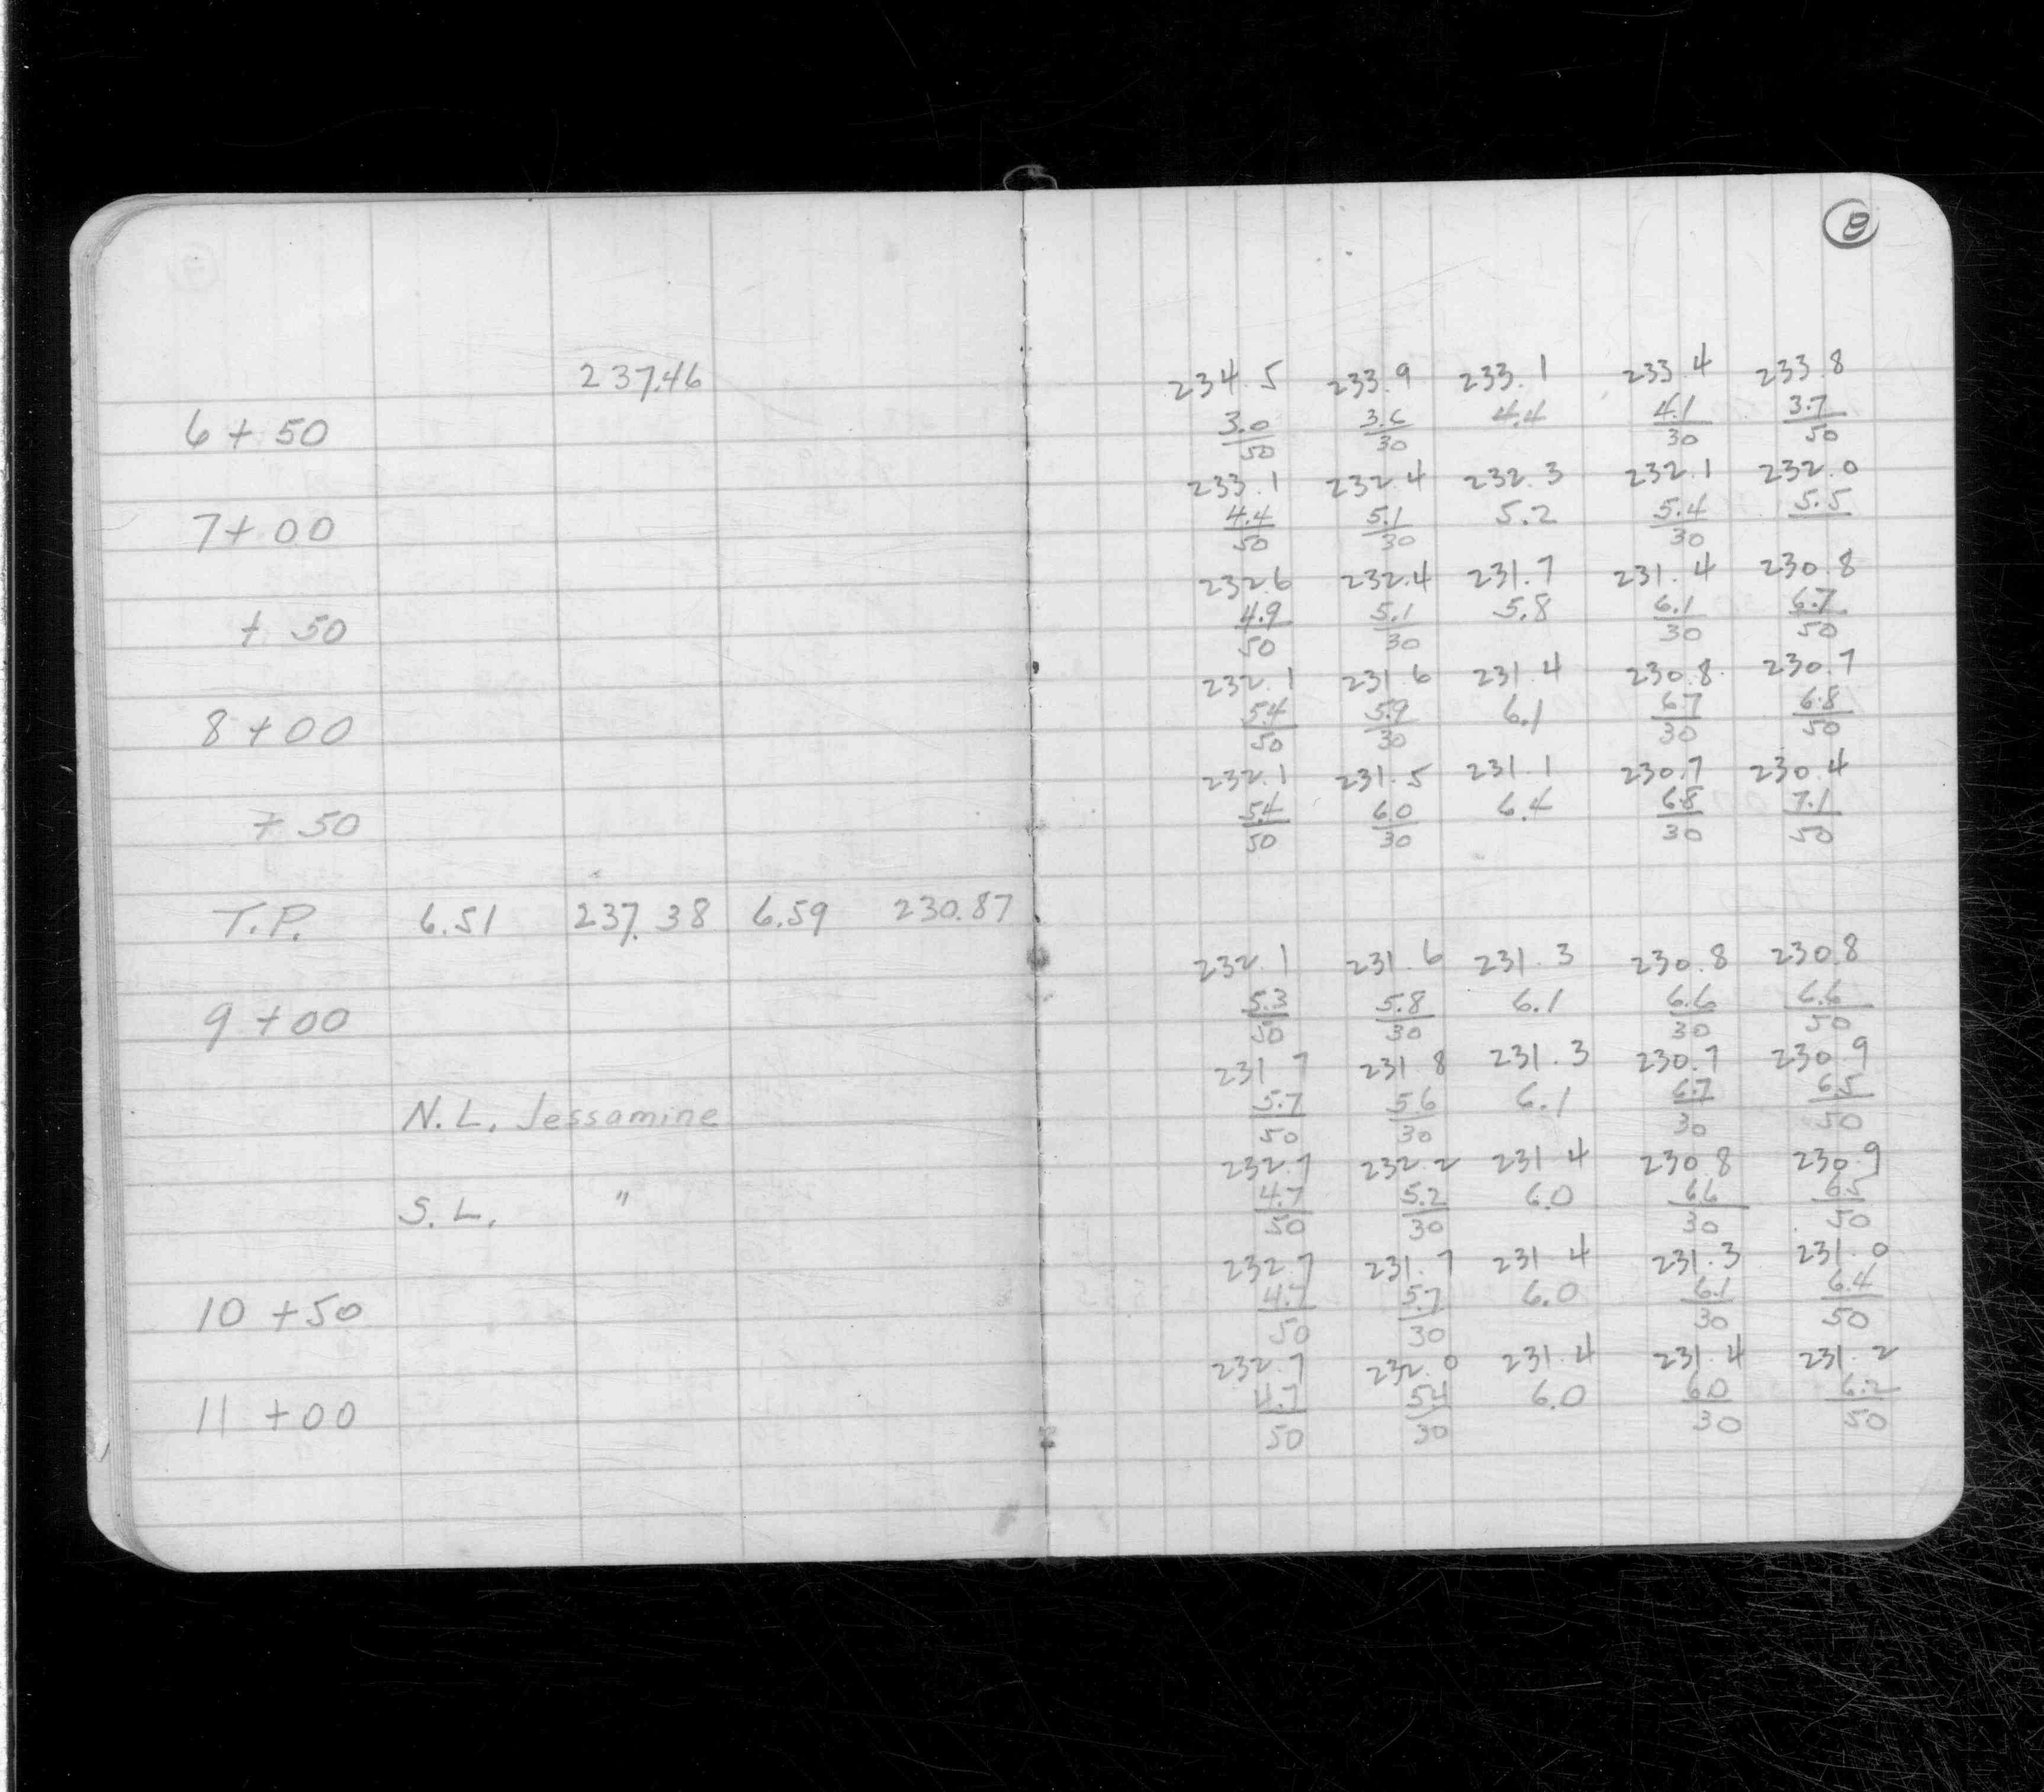 8
237.46 234.5 233.9 233.1 233.4 233.8
6+50 3.0/50 3.6/30 4.4 4.1/30 3.7/50
233.1 232.4 232.3 232.1 232.0
7+00 4.4/50 5.1/30 5.2 5.4/30 5.5
232.6 232.4 231.7 231.4 230.8
+50 4.9/50 5.1/30 5.8 6.1/30 6.7/50
232.1 231.6 231.4 230.8 230.7
8+00 5.4/50 5.9/30 6.1 6.7/30 6.8/50
232.1 231.5 231.1 230.7 230.4
+50 5.4/50 6.0/30 6.4 6.8/30 7.1/50
T.P. 6.51 237.38 6.59 230.87
232.1 231.6 231.3 230.8 230.8
9+00 5.3/50 5.8/30 6.1 6.6/30 6.6/50
231.7 231.8 231.3 230.7 230.9
N.L. Jessamine 5.7/50 5.6/30 6.1 6.7/30 6.5/50
232.7 232.2 231.4 230.8 230.9
S.L. " 4.7/50 5.2/30 6.0 6.6/30 6.5/50
232.7 231.7 231.4 231.3 231.0
10+50 4.7/50 5.7/30 6.0 6.1/30 6.4/50
232.7 232.0 231.4 231.4 231.2
11+00 4.7/50 5.4/30 6.0 6.0/30 6.2/50